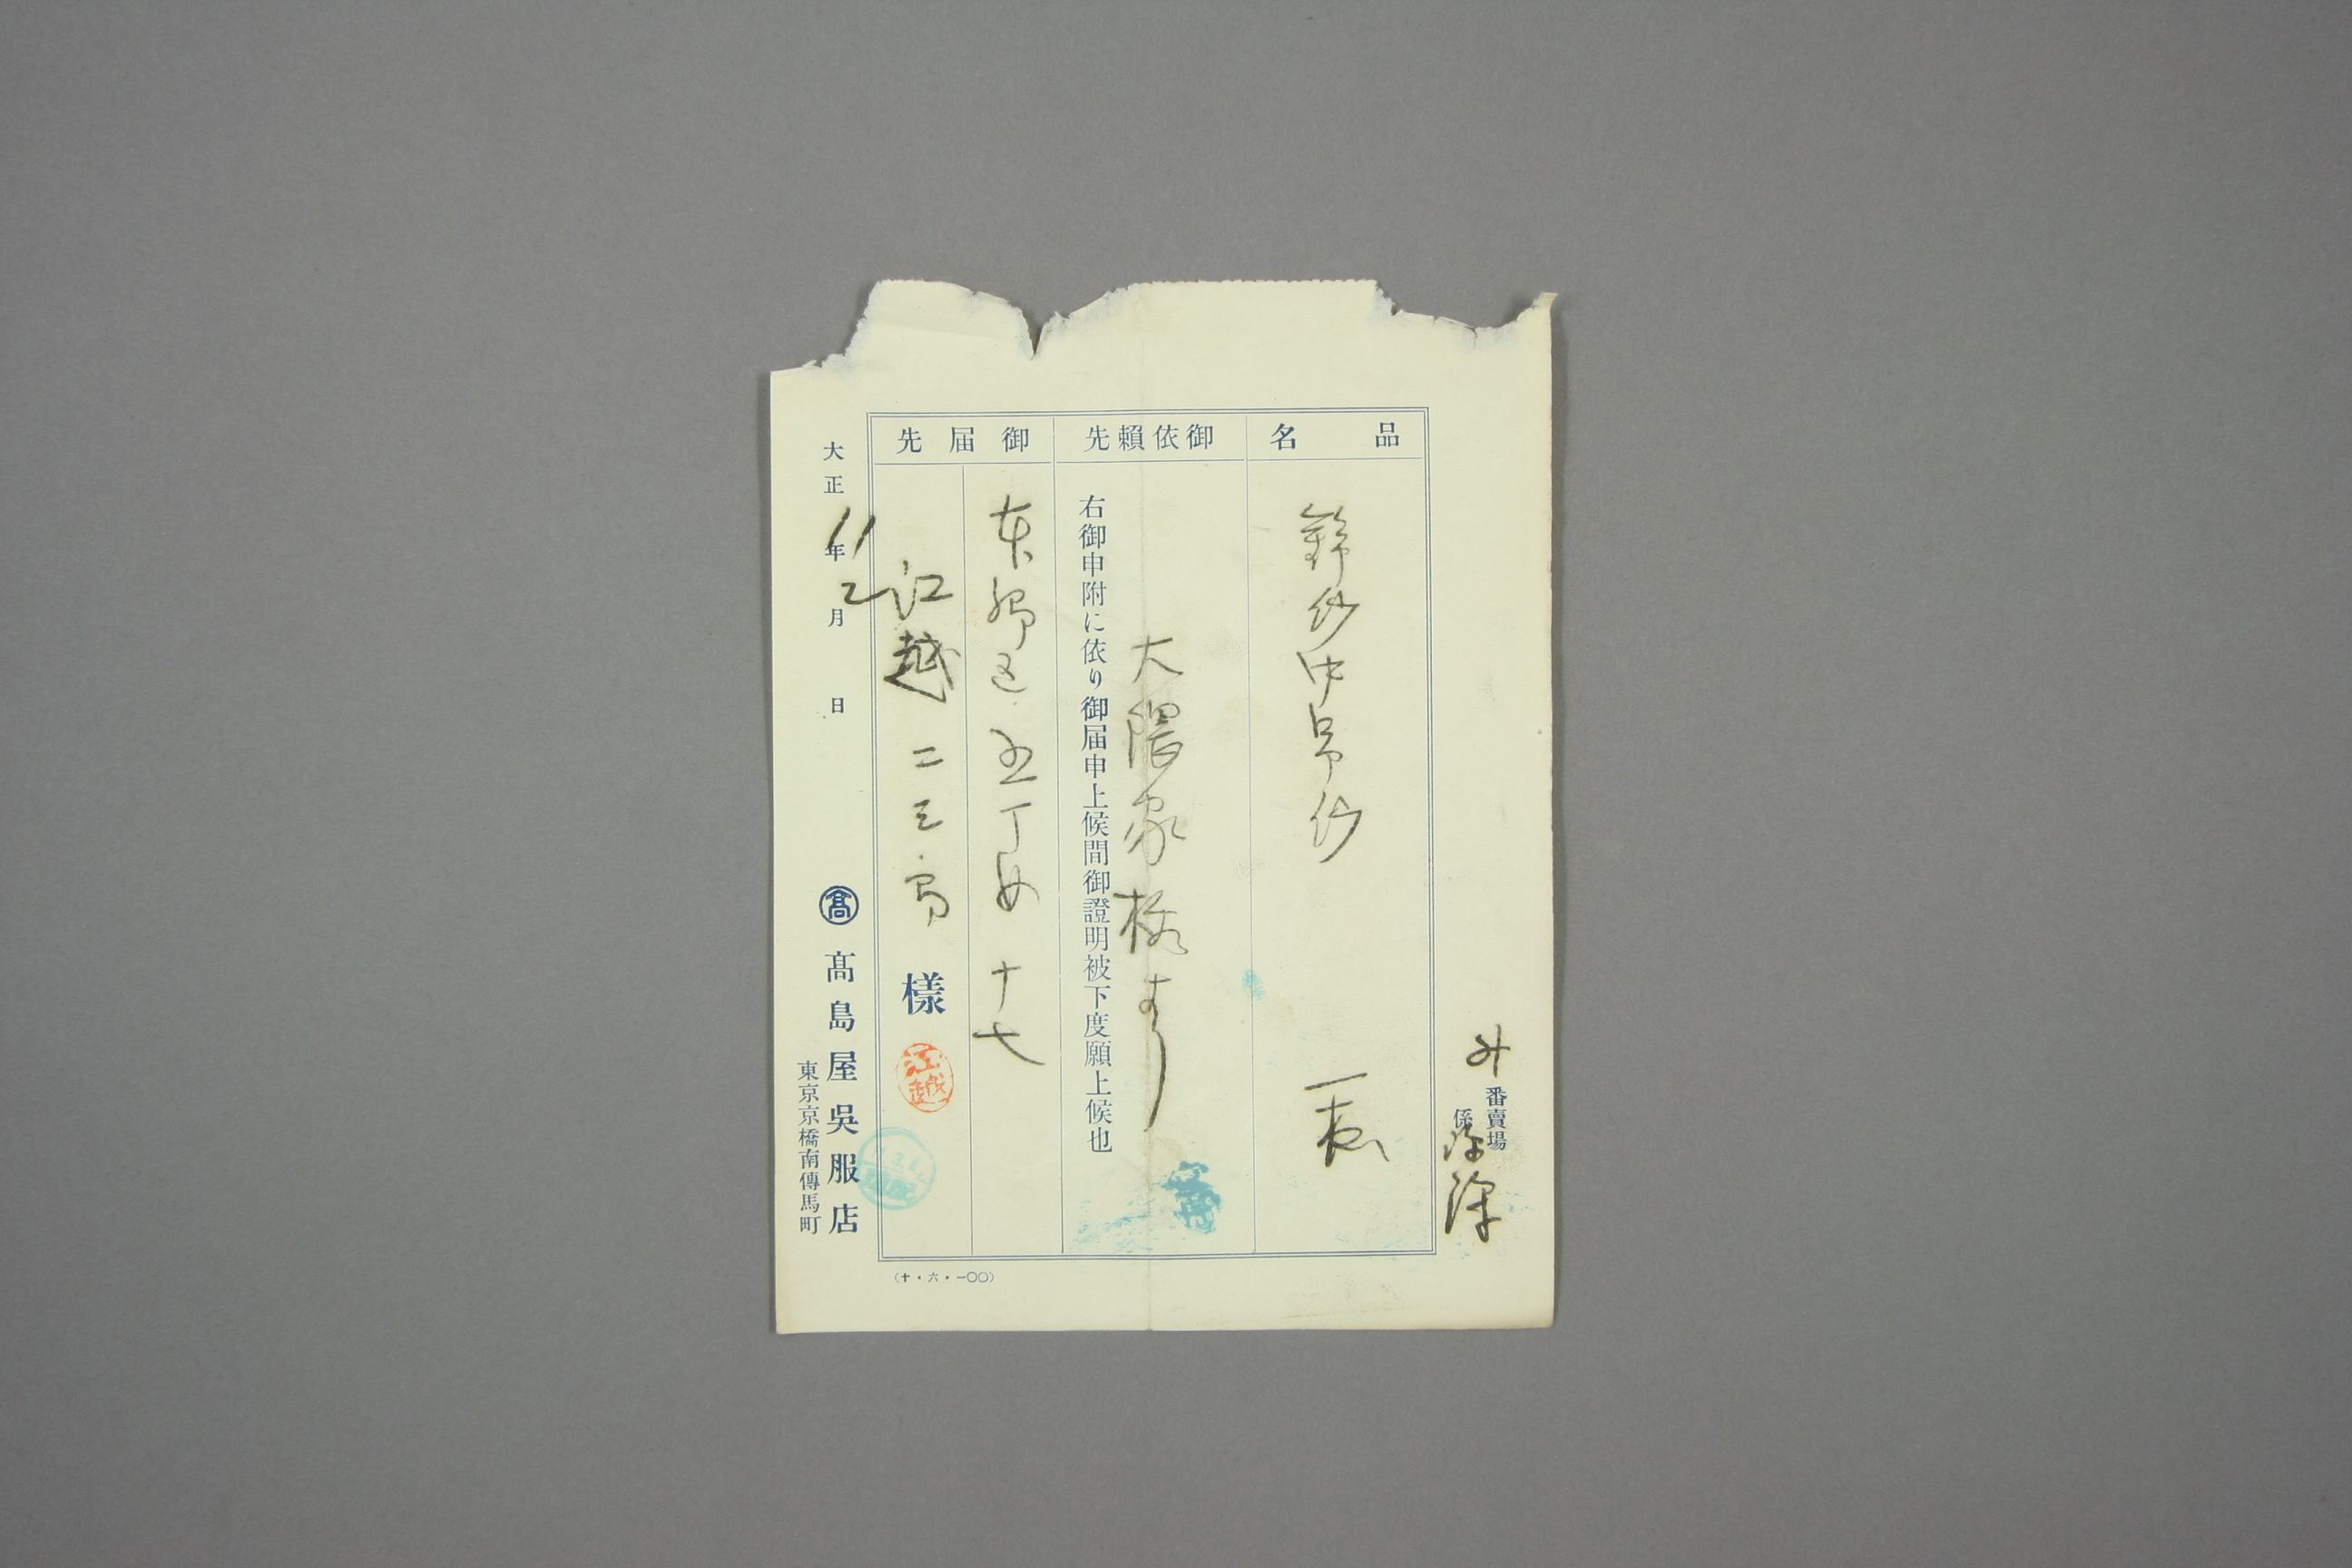 外番賣場
係
品名
錦紗中帛紗
一枚
御依賴先
大隈家様より
右御申附に依り御届申上候間御證明被下度願上候也
御届先
五丁目十七
江越二三郎様
江越
大正11年2月日
髙
髙島屋吳服店
東京京橋南傳馬町
(十・六・一〇〇)